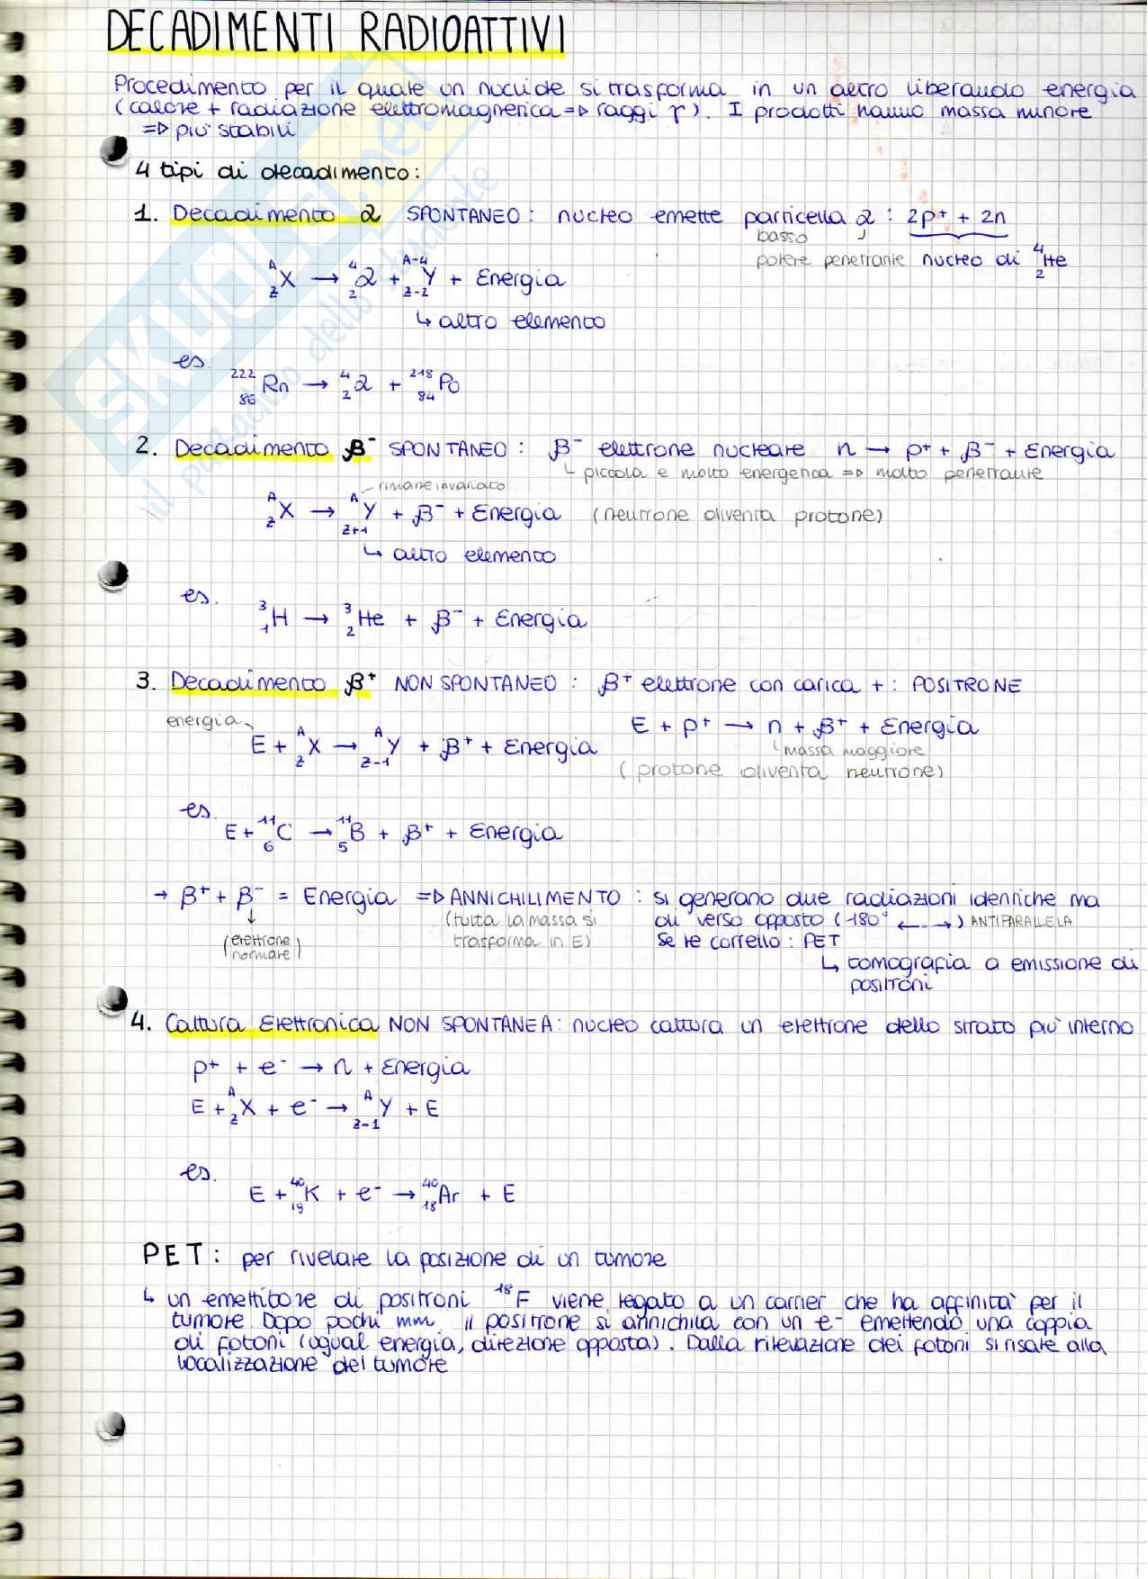 DECADIMENTI RADIOATTIVI
Procedimento per il quale un nuclide si trasforma in un altro liberando energia
(calore + radiazione elettromagnetica => raggi γ). I prodotti hanno massa minore
=> più stabili
4 tipi di decadimento:
1. Decadimento α SPONTANEO: nucleo emette particella α: 2p⁺ + 2n
basso
potere penetrante nucleo di ⁴₂He
ᴬ_Z X → ⁴₂α + ᴬ⁻⁴_Z-2 Y + Energia
↳ altro elemento
es ²²²₈₆Rn → ⁴₂α + ²¹⁸₈₄Po
2. Decadimento β⁻ SPONTANEO: β⁻ elettrone nucleare n → p⁺ + β⁻ + Energia
↳ piccola e molto energetica => molto penetrante
rimane invariato
ᴬ_Z X → ᴬ_Z+1 Y + β⁻ + Energia (neutrone diventa protone)
↳ altro elemento
es. ³₁H → ³₂He + β⁻ + Energia
3. Decadimento β⁺ NON SPONTANEO: β⁺ elettrone con carica +: POSITRONE
energia E + p⁺ → n + β⁺ + Energia
E + ᴬ_Z X → ᴬ_Z-1 Y + β⁺ + Energia massa maggiore
(protone diventa neutrone)
es. E + ¹¹₆C → ¹¹₅B + β⁺ + Energia
→ β⁺ + β⁻ = Energia => ANNICHILIMENTO: si generano due radiazioni identiche ma
(tutta la massa si di verso opposto (180° ←--→) ANTIPARALLELA
(elettrone trasforma in E) Se le correlo: PET
normale)
↳ tomografia a emissione di
positroni
4. Cattura Elettronica NON SPONTANEA: nucleo cattura un elettrone dello strato più interno
p⁺ + e⁻ → n + Energia
E + ᴬ_Z X + e⁻ → ᴬ_Z-1 Y + E
es. E + ⁴⁰₁₉K + e⁻ → ⁴⁰₁₈Ar + E
PET: per rivelare la posizione di un tumore
↳ un emettitore di positroni ¹⁸F viene legato a un carrier che ha affinità per il
tumore Dopo pochi mm il positrone si annichila con un e⁻ emettendo una coppia
di fotoni (ugual energia, direzione opposta). Dalla rilevazione dei fotoni si risale alla
localizzazione del tumore
SKUOLA.net
il paradiso dello studente